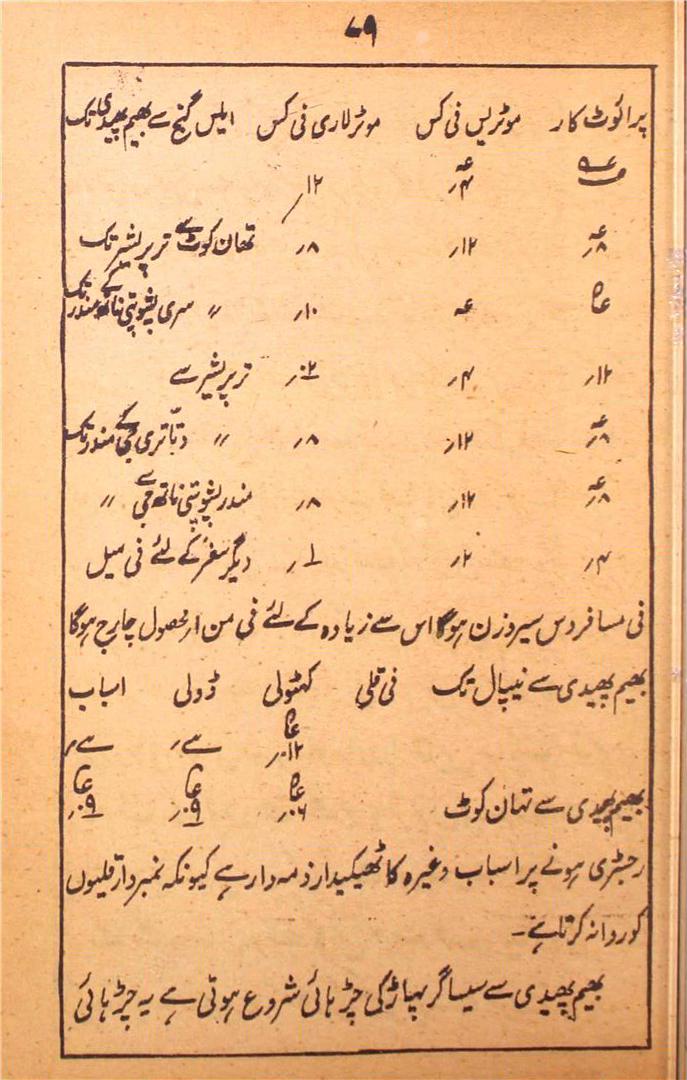 ۷۹
پرائوٹ کار موٹربس فی کس موٹر لاری فی کس ایلس گنج سے بھیم پھیدی تک
۴؍ ۱۲؍
۸؍ ۱۲؍ ۸؍ تھان کوٹ سے ترپریشر تک
۱۰؍ 〃 سری پشوپتی ناتھ کے مندر تک
۱۲؍ ۴؍ ۲؍ ترپریشر سے
۸؍ ۱۲؍ ۸؍ 〃 دتاتری جی کے مندر تک
۸؍ ۱۲؍ ۸؍ مندر پشوپتی ناتھ جی سے 〃
۴؍ ۲؍ ۱؍ دیگر سفر کے لئے فی میل
فی مسافر دس سیر وزن ہوگا اس سے زیادہ کے لئے فی من ۱؍ محصول چارج ہوگا
بھیم پھیدی سے نیپال تک فی قلی کہٹولی ڈولی اسباب
۱۲؍
بھیم پھیدی سے تہان کوٹ ۶؍ ۹؍ ۹؍
رجسٹری ہونے پر اسباب وغیرہ کا ٹھیکیدار ذمہ دار ہے کیونکہ نمبردار قلیوں
کو روانہ کرتا ہے۔
بھیم پھیدی سے سیسا گر پہاڑ کی چڑہائی شروع ہوتی ہے یہ چڑہائی